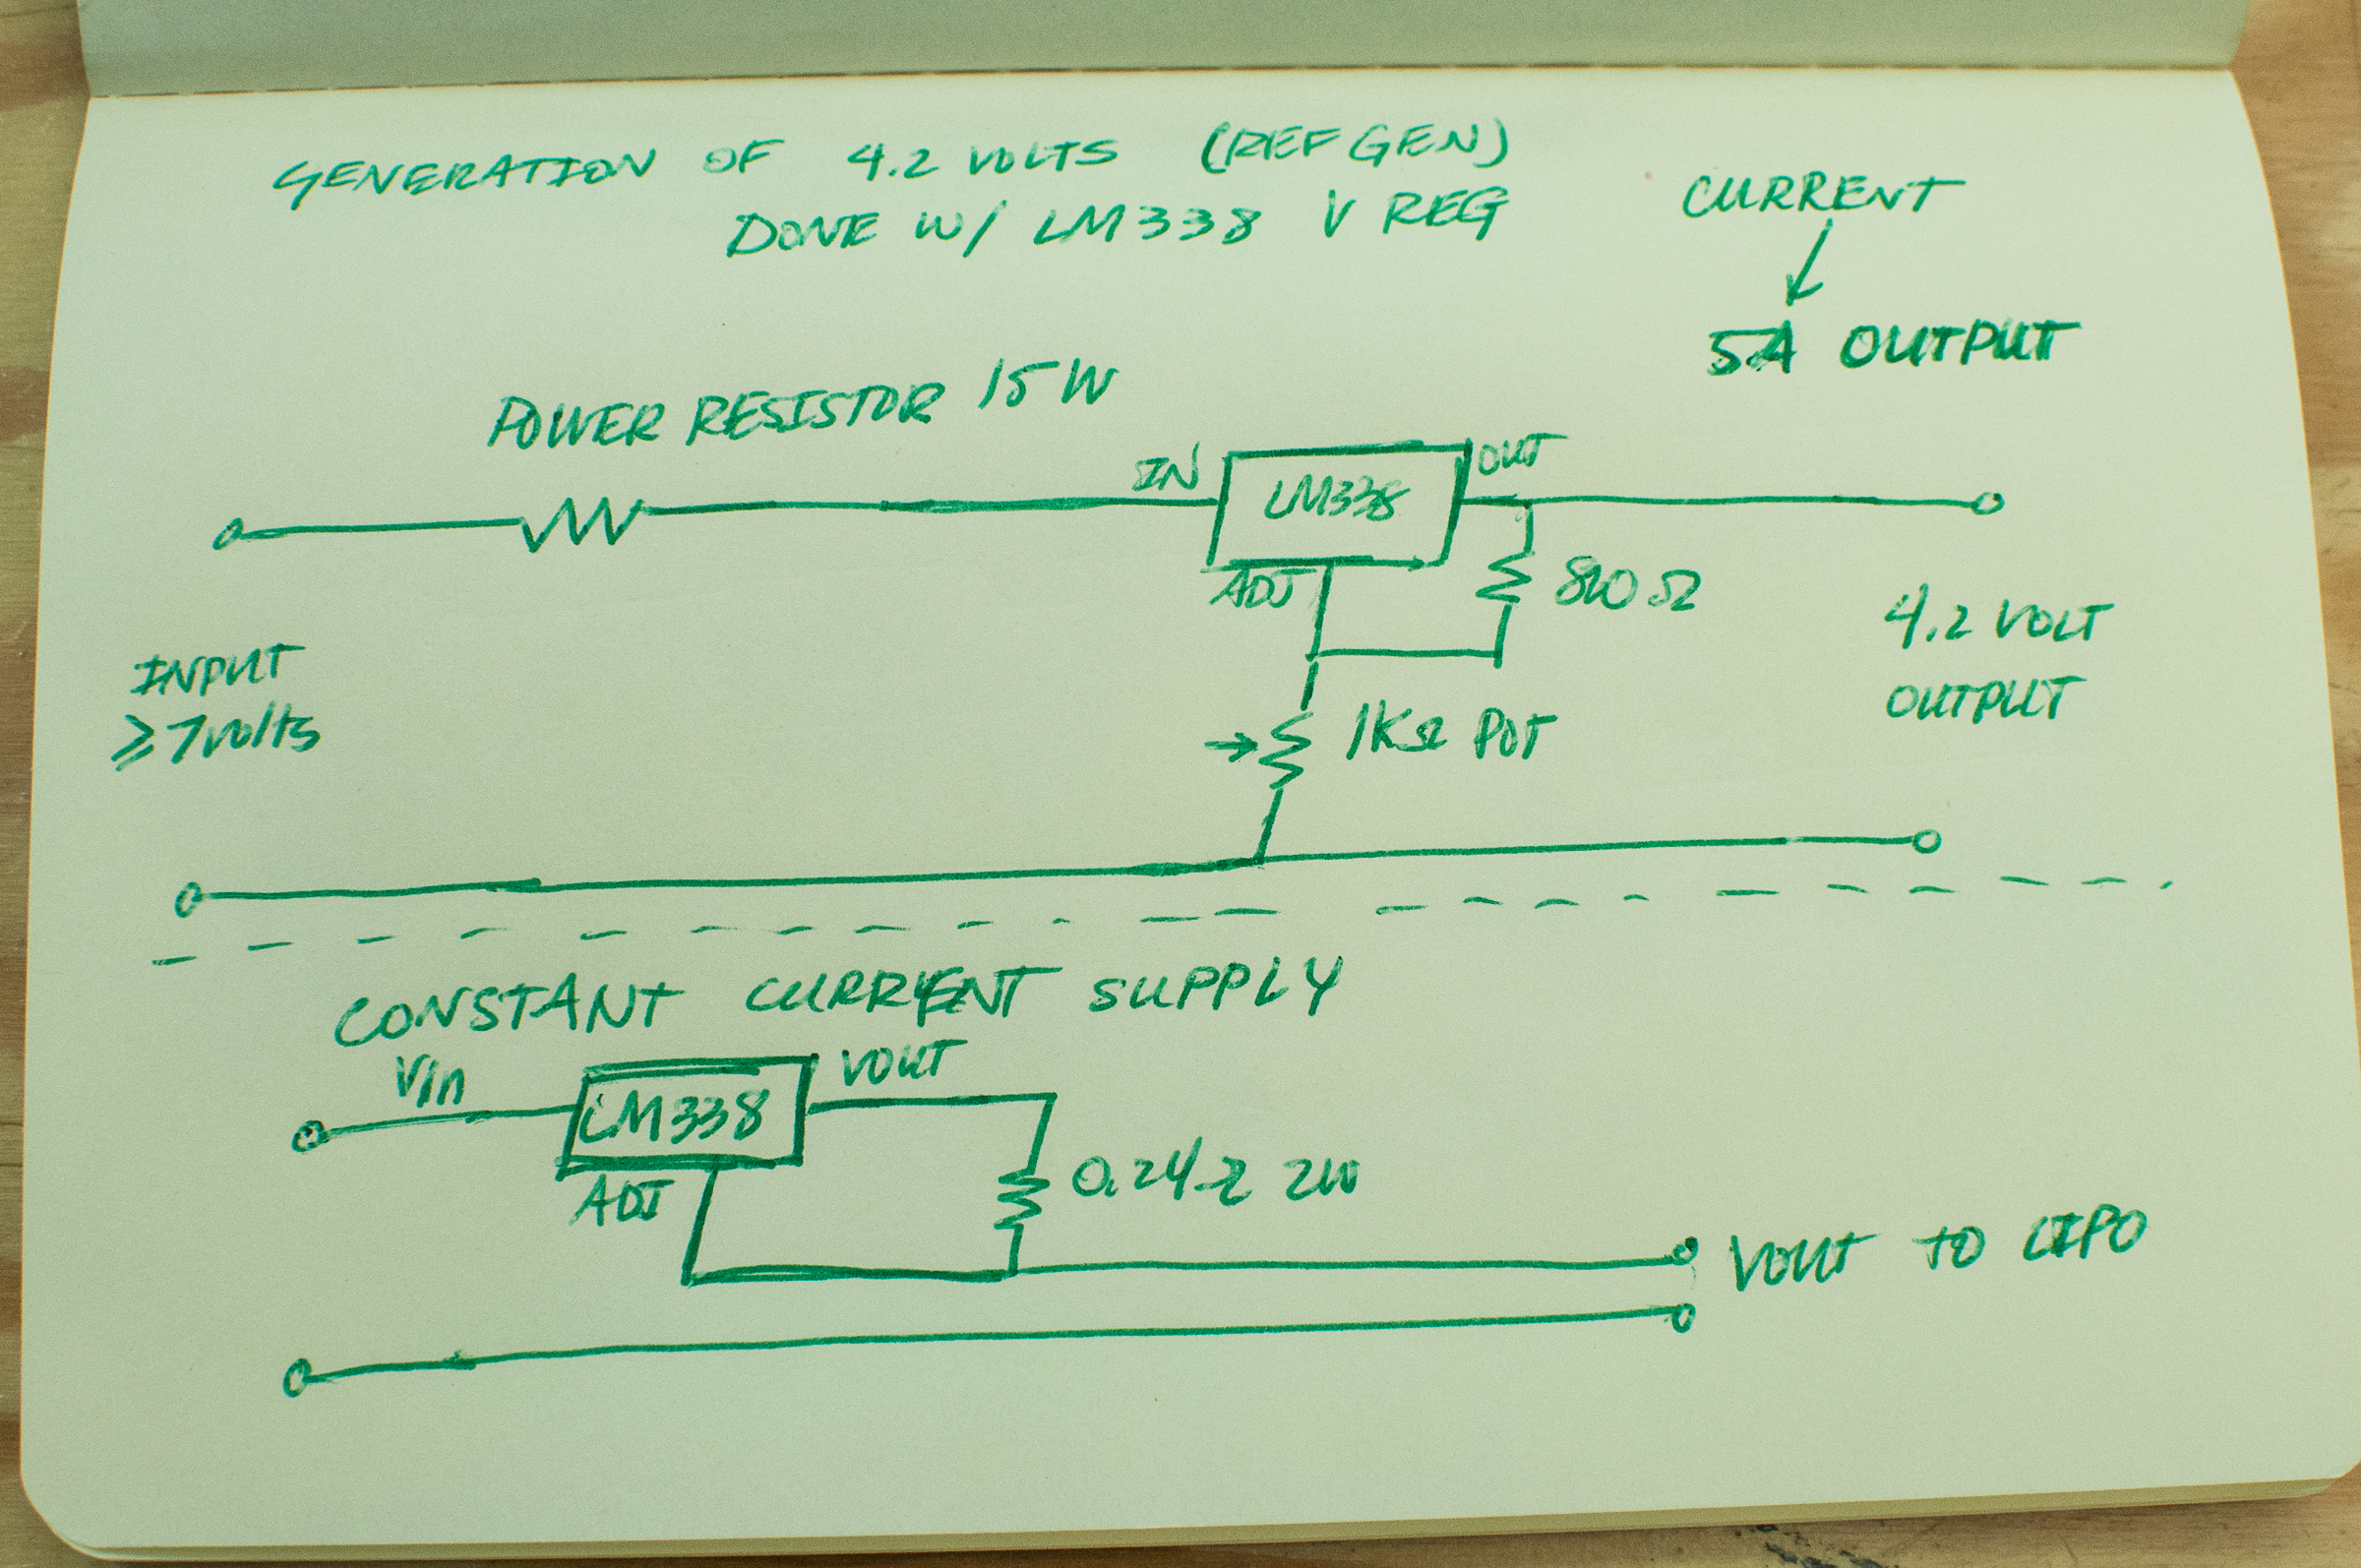 GENERATION OF 4.2 VOLTS (REF GEN)
DONE W/ LM338 V REG
CURRENT
5A OUTPUT
POWER RESISTOR 15W
IN
LM338
OUT
ADJ
Ω
INPUT
≥7volts
1KΩ POT
4.2 VOLT
OUTPUT
CONSTANT CURRENT SUPPLY
Vin
LM338
VOUT
ADJ
0.24Ω 2W
VOUT TO LIPO